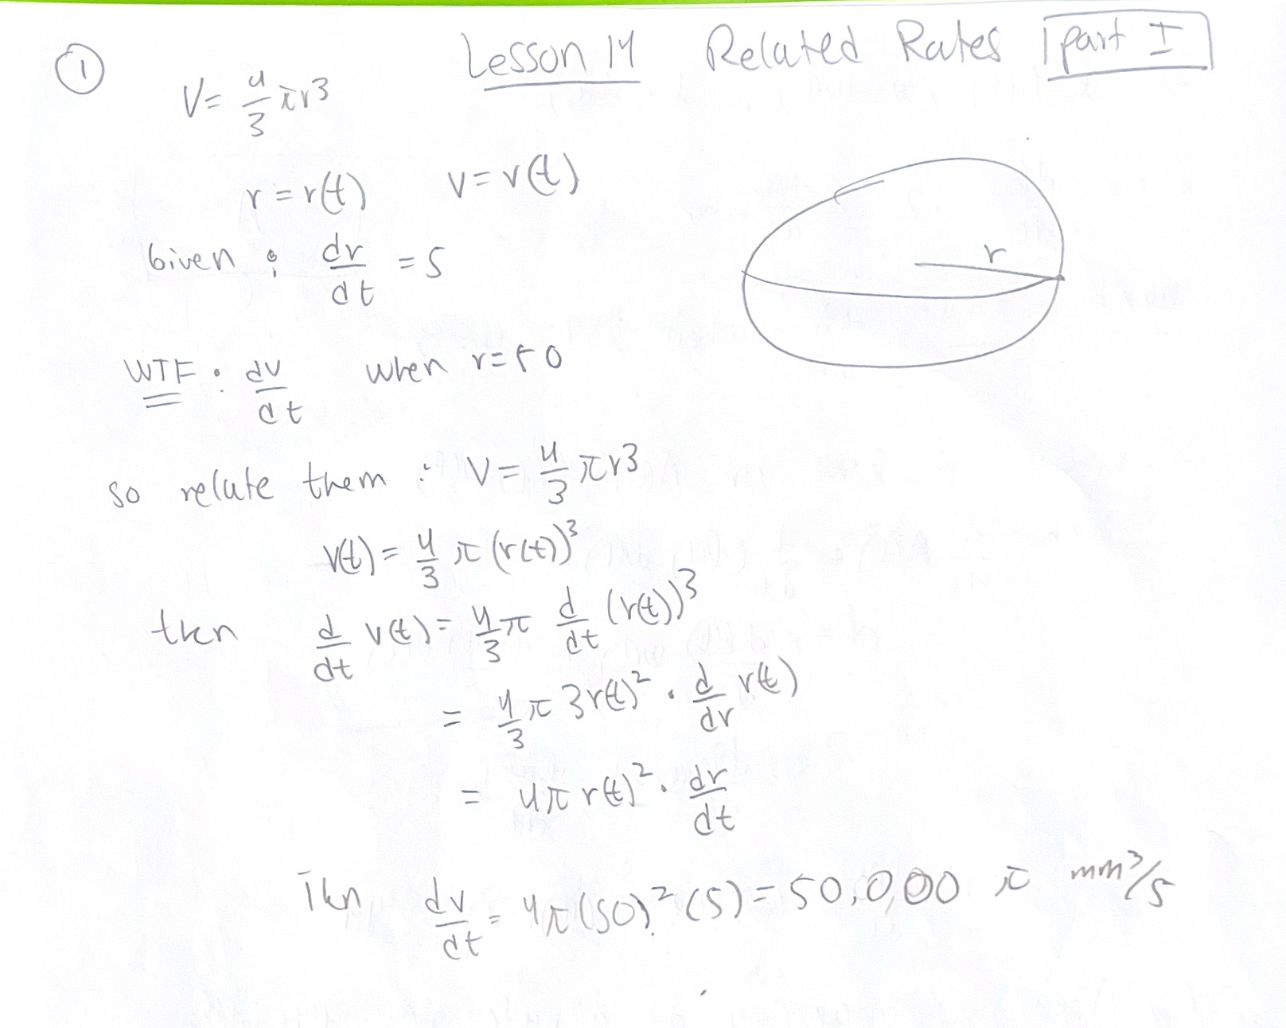 ① Lesson 14 Related Rates part I
V = 4/3 πr3
r = r(t) v = v(t)
Given : dr/dt = 5
r
WTF : dv/dt when r = 50
so relate them : V = 4/3 πr3
v(t) = 4/3 π (r(t))³
then d/dt v(t) = 4/3 π d/dt (r(t))³
= 4/3 π 3r(t)² · d/dr r(t)
= 4π r(t)² · dr/dt
Then dv/dt = 4π(50)² (5) = 50,000 π mm³/s